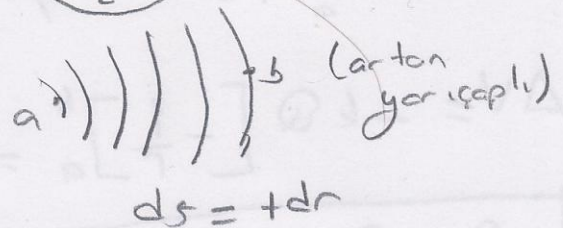 a b (artan
yarıçaplı)
ds = +dr